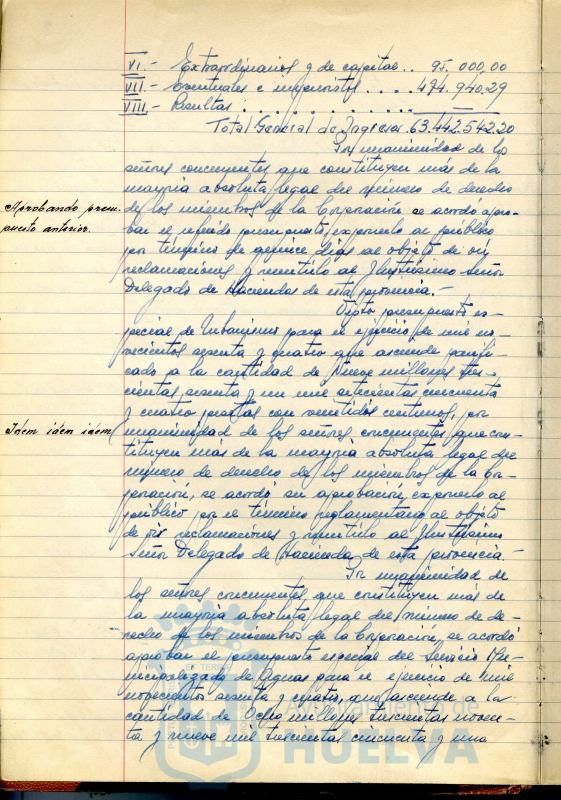 VI.- Extraordinarios y de capital.. 95.000,00
VII.- Eventuales e imprevistos .... 474.940,29
VIII.- Resultas ............
Total General de Ingresos 63.442.542.20
Por unanimidad de los
señores concurrentes que constituyen más de la
mayoria absoluta legal del número de derecho
Aprobando presupuesto anterior.
de los miembros de la Corporación se acordó apro-
bar el referido presupuesto, exponerlo al público
por término de quince días al objeto de oir
reclamaciones y remitirlo al Ilustrísimo Señor
Delegado de Hacienda de esta provincia.-
Visto presupuesto es-
pecial de Urbanismo para el ejercicio de mil no-
vecientos sesenta y cuatro que asciende
a la cantidad de Nueve millones tres-
cientas sesenta y un mil setecientas cincuenta
y cuatro pesetas con veintidos centimos, por
Idem idem idem
unanimidad de los señores concurrentes que cons-
tituyen más de la mayoria absoluta legal del
número de derecho de los miembros de la Cor-
poración, se acordó su aprobación, exponerlo al
público por el término reglamentario al objeto
de oir reclamaciones y remitirlo al Ilustrísimo
Señor Delegado de Hacienda de esta provincia.-
Por unanimidad de
los señores concurrentes que constituyen más de
la mayoria absoluta legal del número de de-
recho de los miembros de la Corporación, se acordó
aprobar el presupuesto especial del Servicio Mu-
nicipalizado de Aguas para el ejercicio de mil
novecientos sesenta y cuatro, que asciende a la
cantidad de Ocho millones trescientas noven-
ta y nueve mil trescientas cincuenta y una
Ayuntamiento de
HUELVA